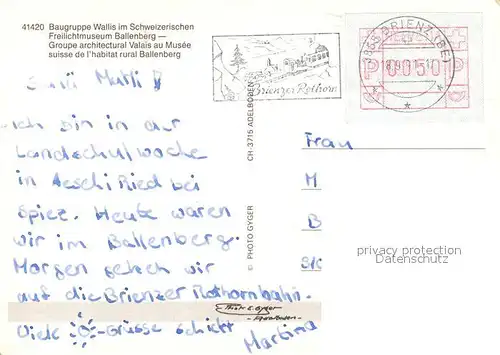 41420 Baugruppe Wallis im Schweizerischen
Freilichtmuseum Ballenberg —
Groupe architectural Valais au Musée
suisse de l'habitat rural Ballenberg
Brienzer Rothorn
3855 BRIENZ (BE)
P 0050 P
CH-3715 ADELBODEN
© PHOTO GYGER
Ich bin in der
Landschulwoche
in Aeschi Ried bei
Spiez. Heute waren
wir im Ballenberg.
Morgen gehen wir
auf die Brienzer Rothornbahn.
Viele -Grüsse schickt
Martina
Frau
M
B
privacy protection
Datenschutz